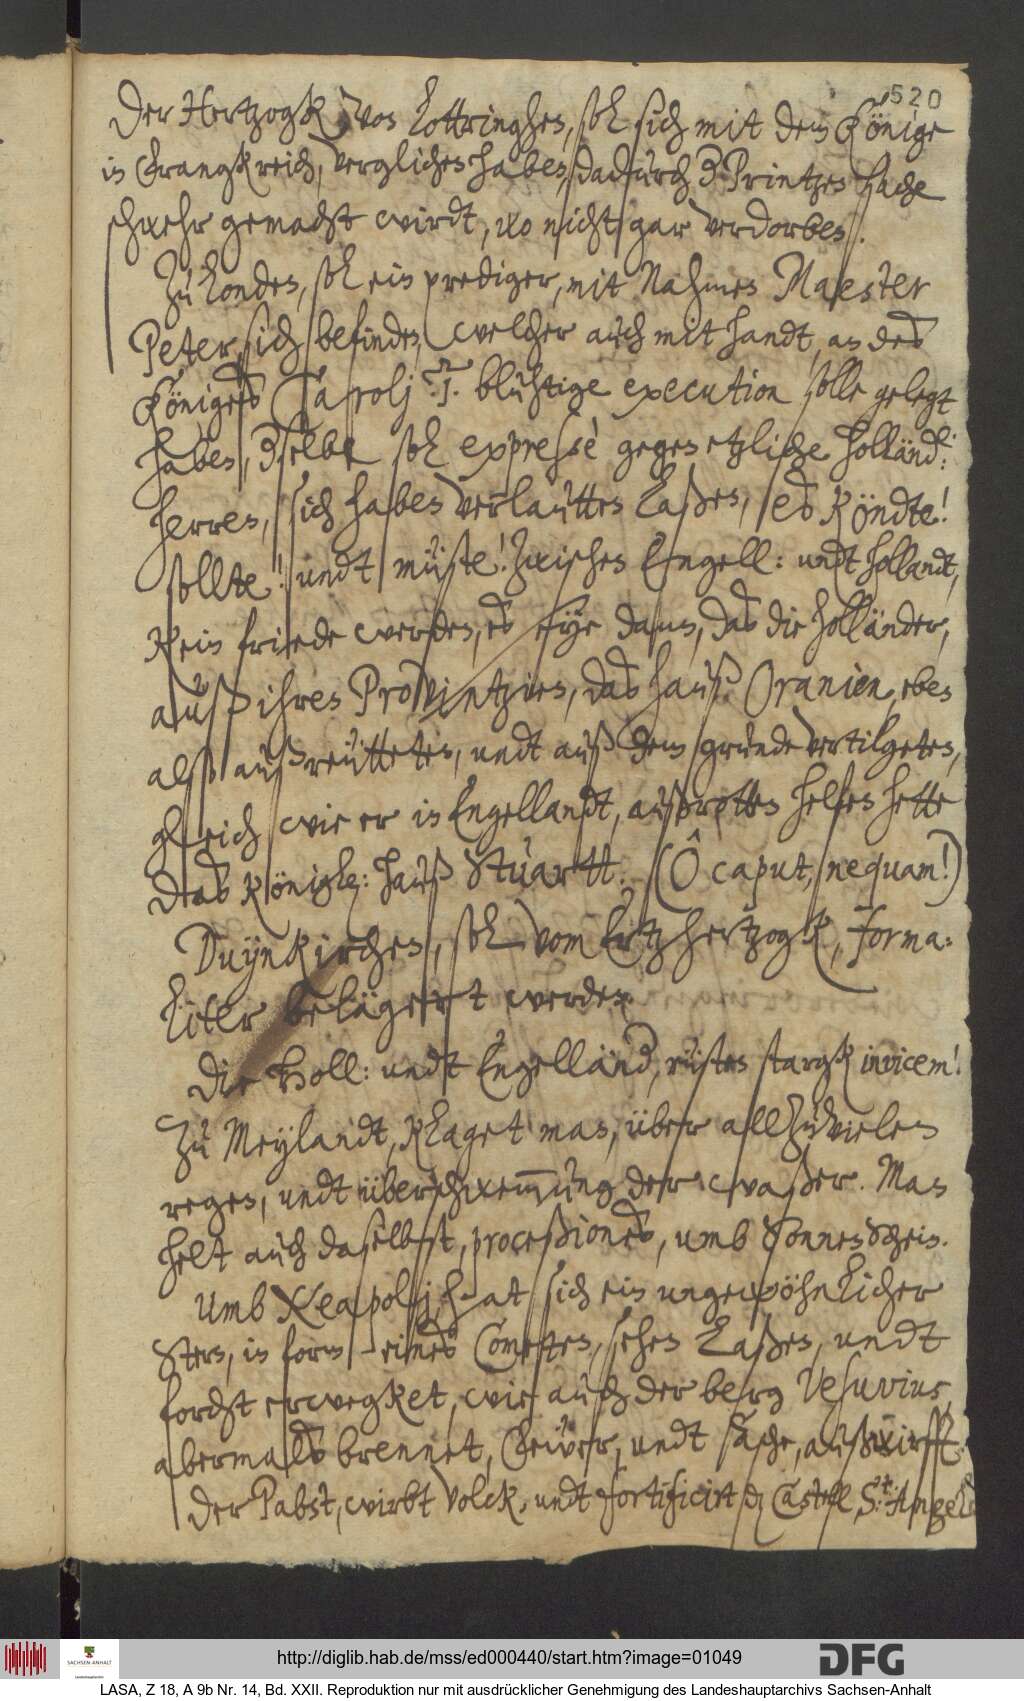 520
Der Hertzogk, von Lottringhen, sol sich mit dem Könige
in Frangkreich, verglichen haben, dadurch d. Printzen sache
schwehr gemacht wirdt, wo nicht gar verdorben.
Zu Londen, sol ein prediger, mit Nahmen Maester
Peter, sich befinden, welcher auch mit handt, an des
Königes Carolj I. bluhtige execution solle gelegt
haben, dselbe sol expressè gegen etzliche Holländ:
herren, sich haben verlautten laßen, es köndte!
sollte! undt müste! zwischen Engell: undt Hollandt,
kein friede werden, es seye dann, das die Holländer,
auß ihren Provintzien, das hauß Oranien, eben
alß außreütteten, undt auß dem grunde vertilgeten,
gleich wie er in Engellandt, außrotten helfen hette
das königl: hauß Stuartt. (Ô caput, nequam!)
Duynkirchen, sol vom Ertzhertzogk, forma:
liter belägert werden.
Die Holl: undt Engelländ, rüsten stargk invicem!
Zu Meylandt, klaget man, über allzuvielen
regen, undt überschwemmung der waßer. Man
helt auch daselbst, processiones, umb Sonnenschein.
Umb Neapolj, hat sich ein ungewöhnlicher
Stern, in form eines Cometen, sehen laßen, undt
forcht erwegket, wie auch der berg Vesuvius,
abermals brennet, feüer, undt asche, außwirfft.
Der Pabst, wirbt volck, undt fortificirt dz Castell St: Angelo
http://diglib.hab.de/mss/ed000440/start.htm?image=01049
SACHSEN-ANHALT
DFG
LASA, Z 18, A 9b Nr. 14, Bd. XXII. Reproduktion nur mit ausdrücklicher Genehmigung des Landeshauptarchivs Sachsen-Anhalt